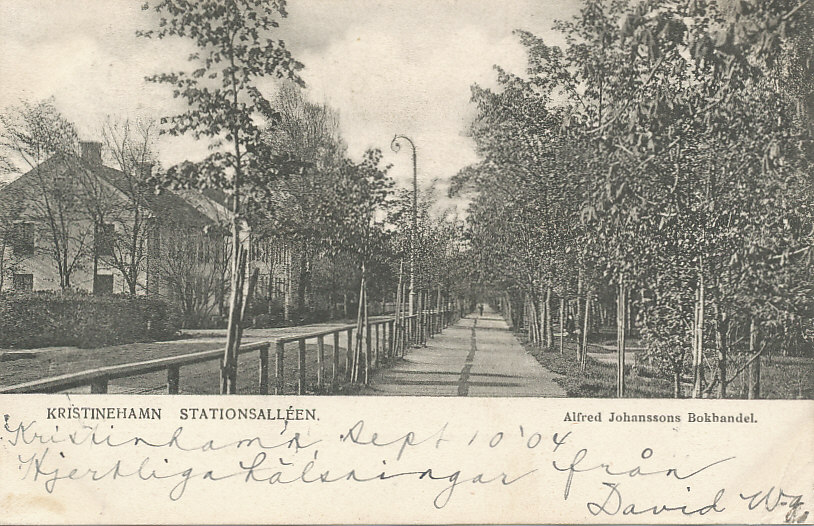 KRISTINEHAMN STATIONSALLÉEN.
Alfred Johanssons Bokhandel.
Kristinehamn, Sept 10 '04
Hjertliga hälsningar från
David